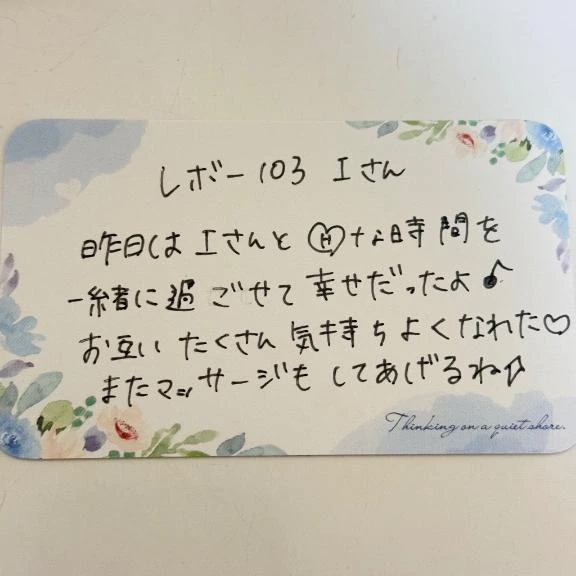 レボー103 Iさん
昨日は Iさんと Ⓗな時間を
一緒に過ごせて幸せだったよ♪
お互いたくさん気持ちよくなれた♡
またマッサージもしてあげるね♪
Thinking on a quiet shore.